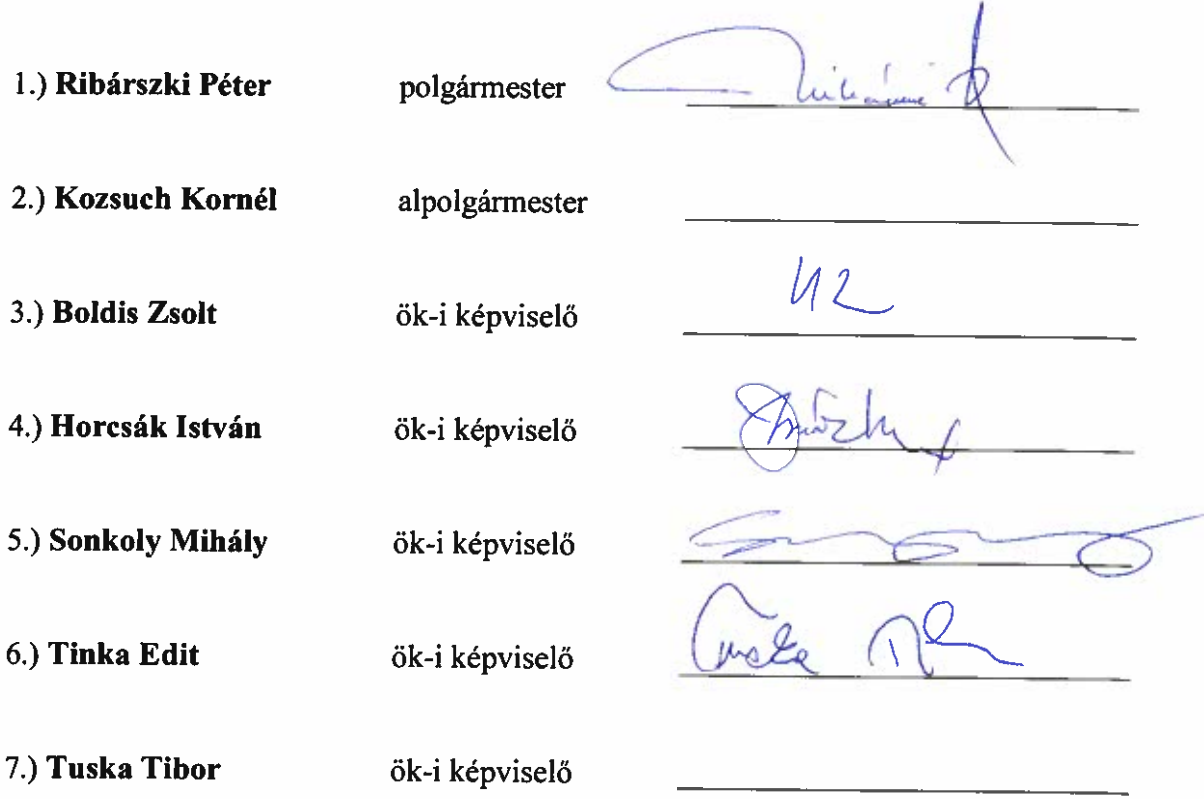 1.) Ribárszki Péter polgármester
2.) Kozsuch Kornél alpolgármester
3.) Boldis Zsolt ök-i képviselő
4.) Horcsák István ök-i képviselő
5.) Sonkoly Mihály ök-i képviselő
6.) Tinka Edit ök-i képviselő
7.) Tuska Tibor ök-i képviselő